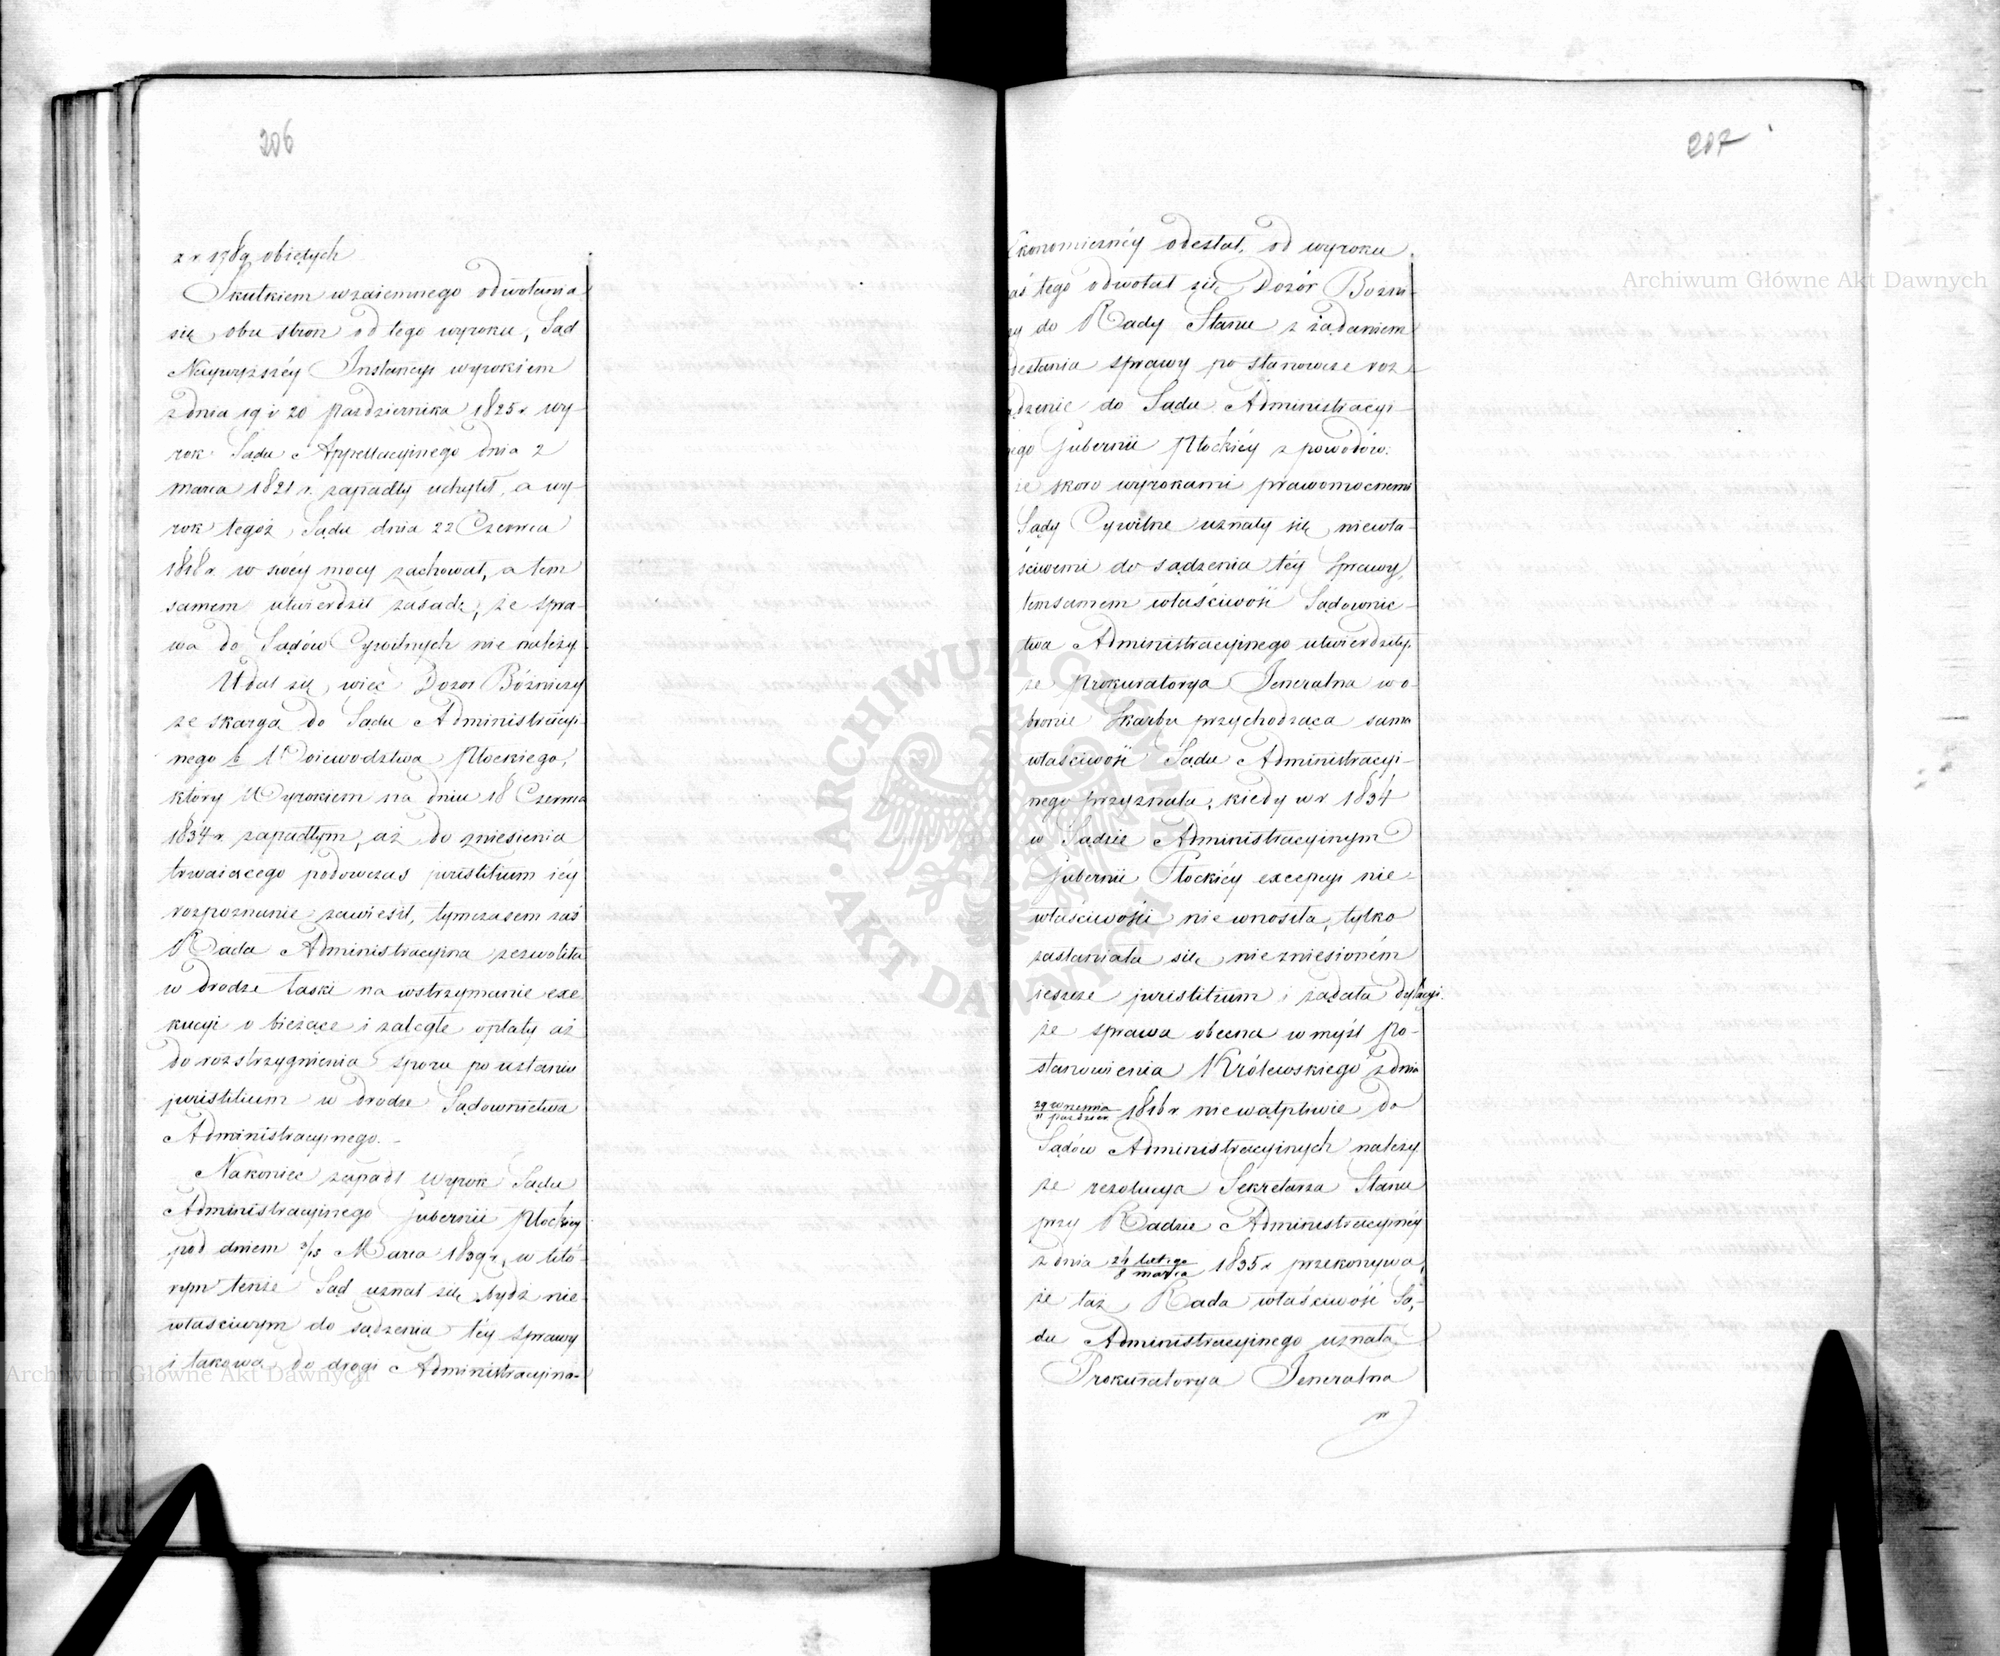 206
z r. 1789 obiętych
Skutkiem wzaiemnego odwołania
się obu stron od tego wyroku, Sąd
Naywyższéy Instancyi wyrokiem
z dnia 19 i 20 Pazdziernika 1825 r. wy-
rok Sądu Appellacyinego dnia 2
Marca 1821 r. zapadły uchylił, a wy-
rok tegoż Sądu dnia 22 Czerwca
1818 r. w swéy mocy zachował, a tem
samem utwierdził zasadę, że spra-
wa do Sądów Cywilnych nie należy.
Udał się więc Dozór Bóżniczy
ze skargą do Sądu Administracyi-
nego b. Woiewodztwa Płockiego,
który Wyrokiem na dniu 18 Czerwca
1834 r. zapadłym, aż do zniesienia
trwaiącego podowczas juristitium iéy
rozpoznanie zawiesił, tymczasem zaś
Rada Administracyina zezwoliła
w drodze łaski na wstrzymanie exe-
kucyi o bieżące i zaległe opłaty aż
do rozstrzygnienia sporu po ustaniu
juristitium w drodze Sądownictwa
Administracyinego.
Nakoniec zapadł Wyrok Sądu
Administracyinego Gubernii Płockiéy
pod dniem 3/15 Marca 1839 r., w któ-
rym tenże Sąd uznał się bydź nie-
właściwym do sądzenia téy sprawy
i takową do drogi Administracyino-
207
Ekonomicznéy odesłał, od wyroku
zaś tego odwołał się Dozór Bożni-
czy do Rady Stanu z żądaniem
odesłania sprawy po stanowcze roz-
sądzenie do Sądu Administracyi-
nego Gubernii Płockiéy z powodów:
że skoro wyrokami prawomocnemi
Sądy Cywilne uznały się niewła-
ściwemi do sądzenia téy sprawy,
temsamem właściwość Sądownic-
twa Administracyinego utwierdziły.
że Prokuratorya Jeneralna w o-
bronie Skarbu przychodząca sama
właściwość Sądu Administracyi-
nego przyznała, kiedy w r. 1834
w Sądzie Administracyinym
Gubernii Płockiéy excepcyi nie-
właściwości nie wnosiła, tylko
zasłaniała się niezniesioném
ieszcze juristitium i żądała dylacyi.
że sprawa obecna w myśl Po-
stanowienia Królewskiego z dnia
29 Wrzesnia / 11 Pazdzier. 1816 r. niewątpliwie do
Sądów Administracyinych należy.
że rezolucya Sekretarza Stanu
przy Radzie Administracyinéy
z dnia 24 lutego / 8 marca 1835 r. przekonywa,
że taż Rada właściwość Są-
du Administracyinego uznała.
Prokuratorya Jeneralna
w
Archiwum Główne Akt Dawnych
Archiwum Główne Akt Dawnych
ARCHIWUM GŁÓWNE AKT DAWNYCH